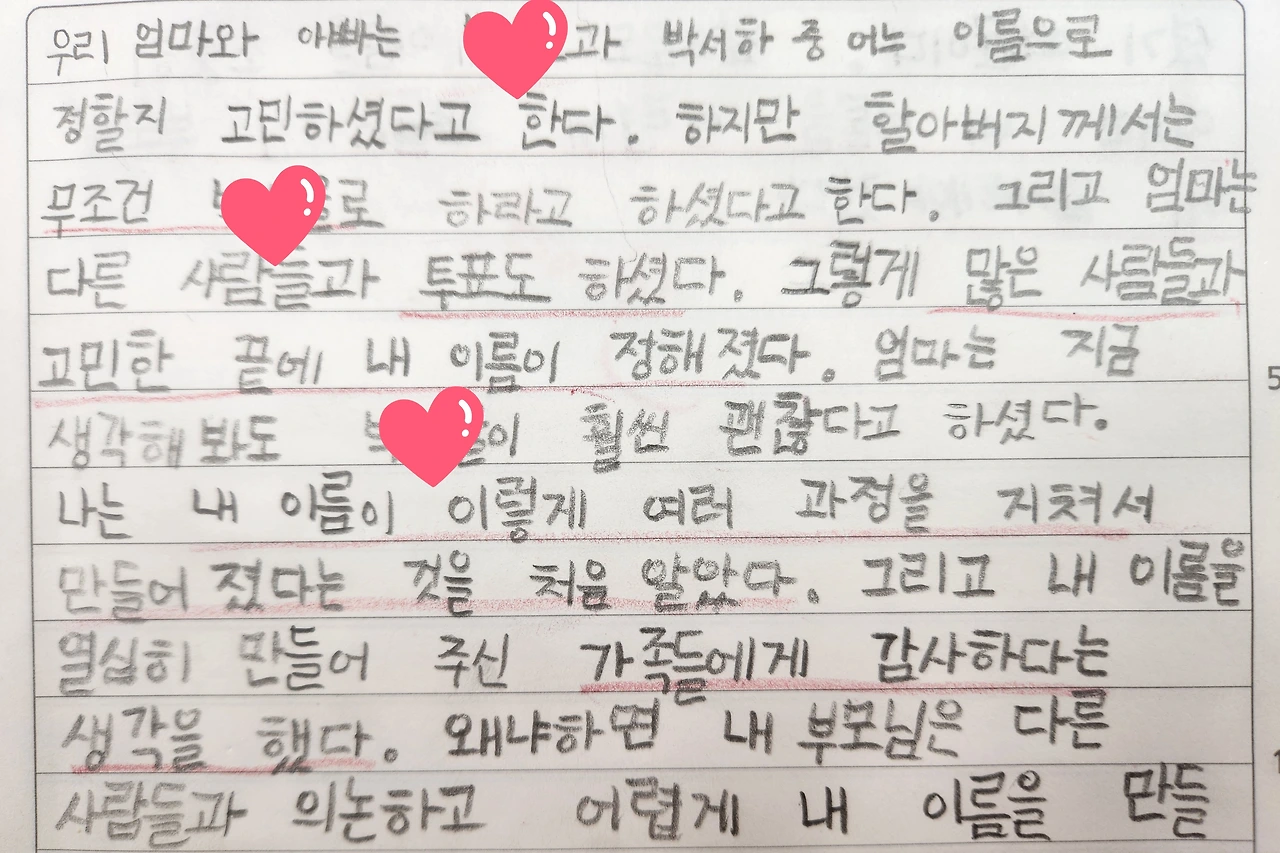 우리 엄마와 아빠는 과 박서하 중 어느 이름으로
정할지 고민하셨다고 한다. 하지만 할아버지께서는
무조건 로 하라고 하셨다고 한다. 그리고 엄마는
다른 사람들과 투표도 하셨다. 그렇게 많은 사람들과
고민한 끝에 내 이름이 정해졌다. 엄마는 지금
5
생각해 봐도 이 훨씬 괜찮다고 하셨다.
나는 내 이름이 이렇게 여러 과정을 지쳐서
만들어 졌다는 것을 처음 알았다. 그리고 내 이름을
열심히 만들어 주신 가족들에게 감사하다는
생각을 했다. 왜냐하면 내 부모님은 다른
사람들과 의논하고 어렵게 내 이름을 만들